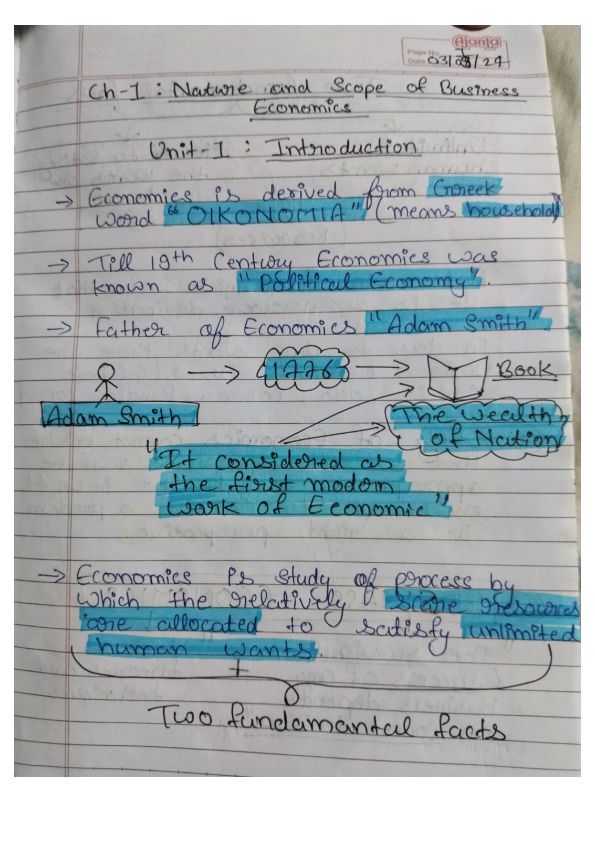 Ajanta
Page No.
Date 03/ /24
Ch-1 : Nature and Scope of Business
Economics
Unit-1 : Introduction
→ Economics is derived from Greek
word "OIKONOMIA" (means household)
→ Till 19th Century Economics was
known as "Political Economy".
→ Father of Economics "Adam Smith"
1776
Book
Adam Smith
The Wealth
of Nation
"It considered as
the first modorn
work of Economic"
→ Economics is study of process by
which the relatively scare resources
are allocated to satisfy unlimited
human wants
+
Two fundamantal facts